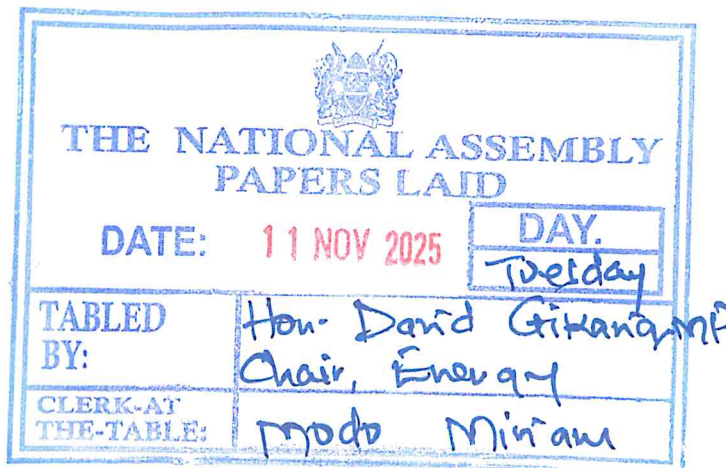 THE NATIONAL ASSEMBLY
PAPERS LAID
DATE: 11 NOV 2025
DAY.
Tuesday
TABLED BY:
Hon. David Gikaria, MP
Chair, Energy
CLERK-AT THE-TABLE:
Modo Miriam